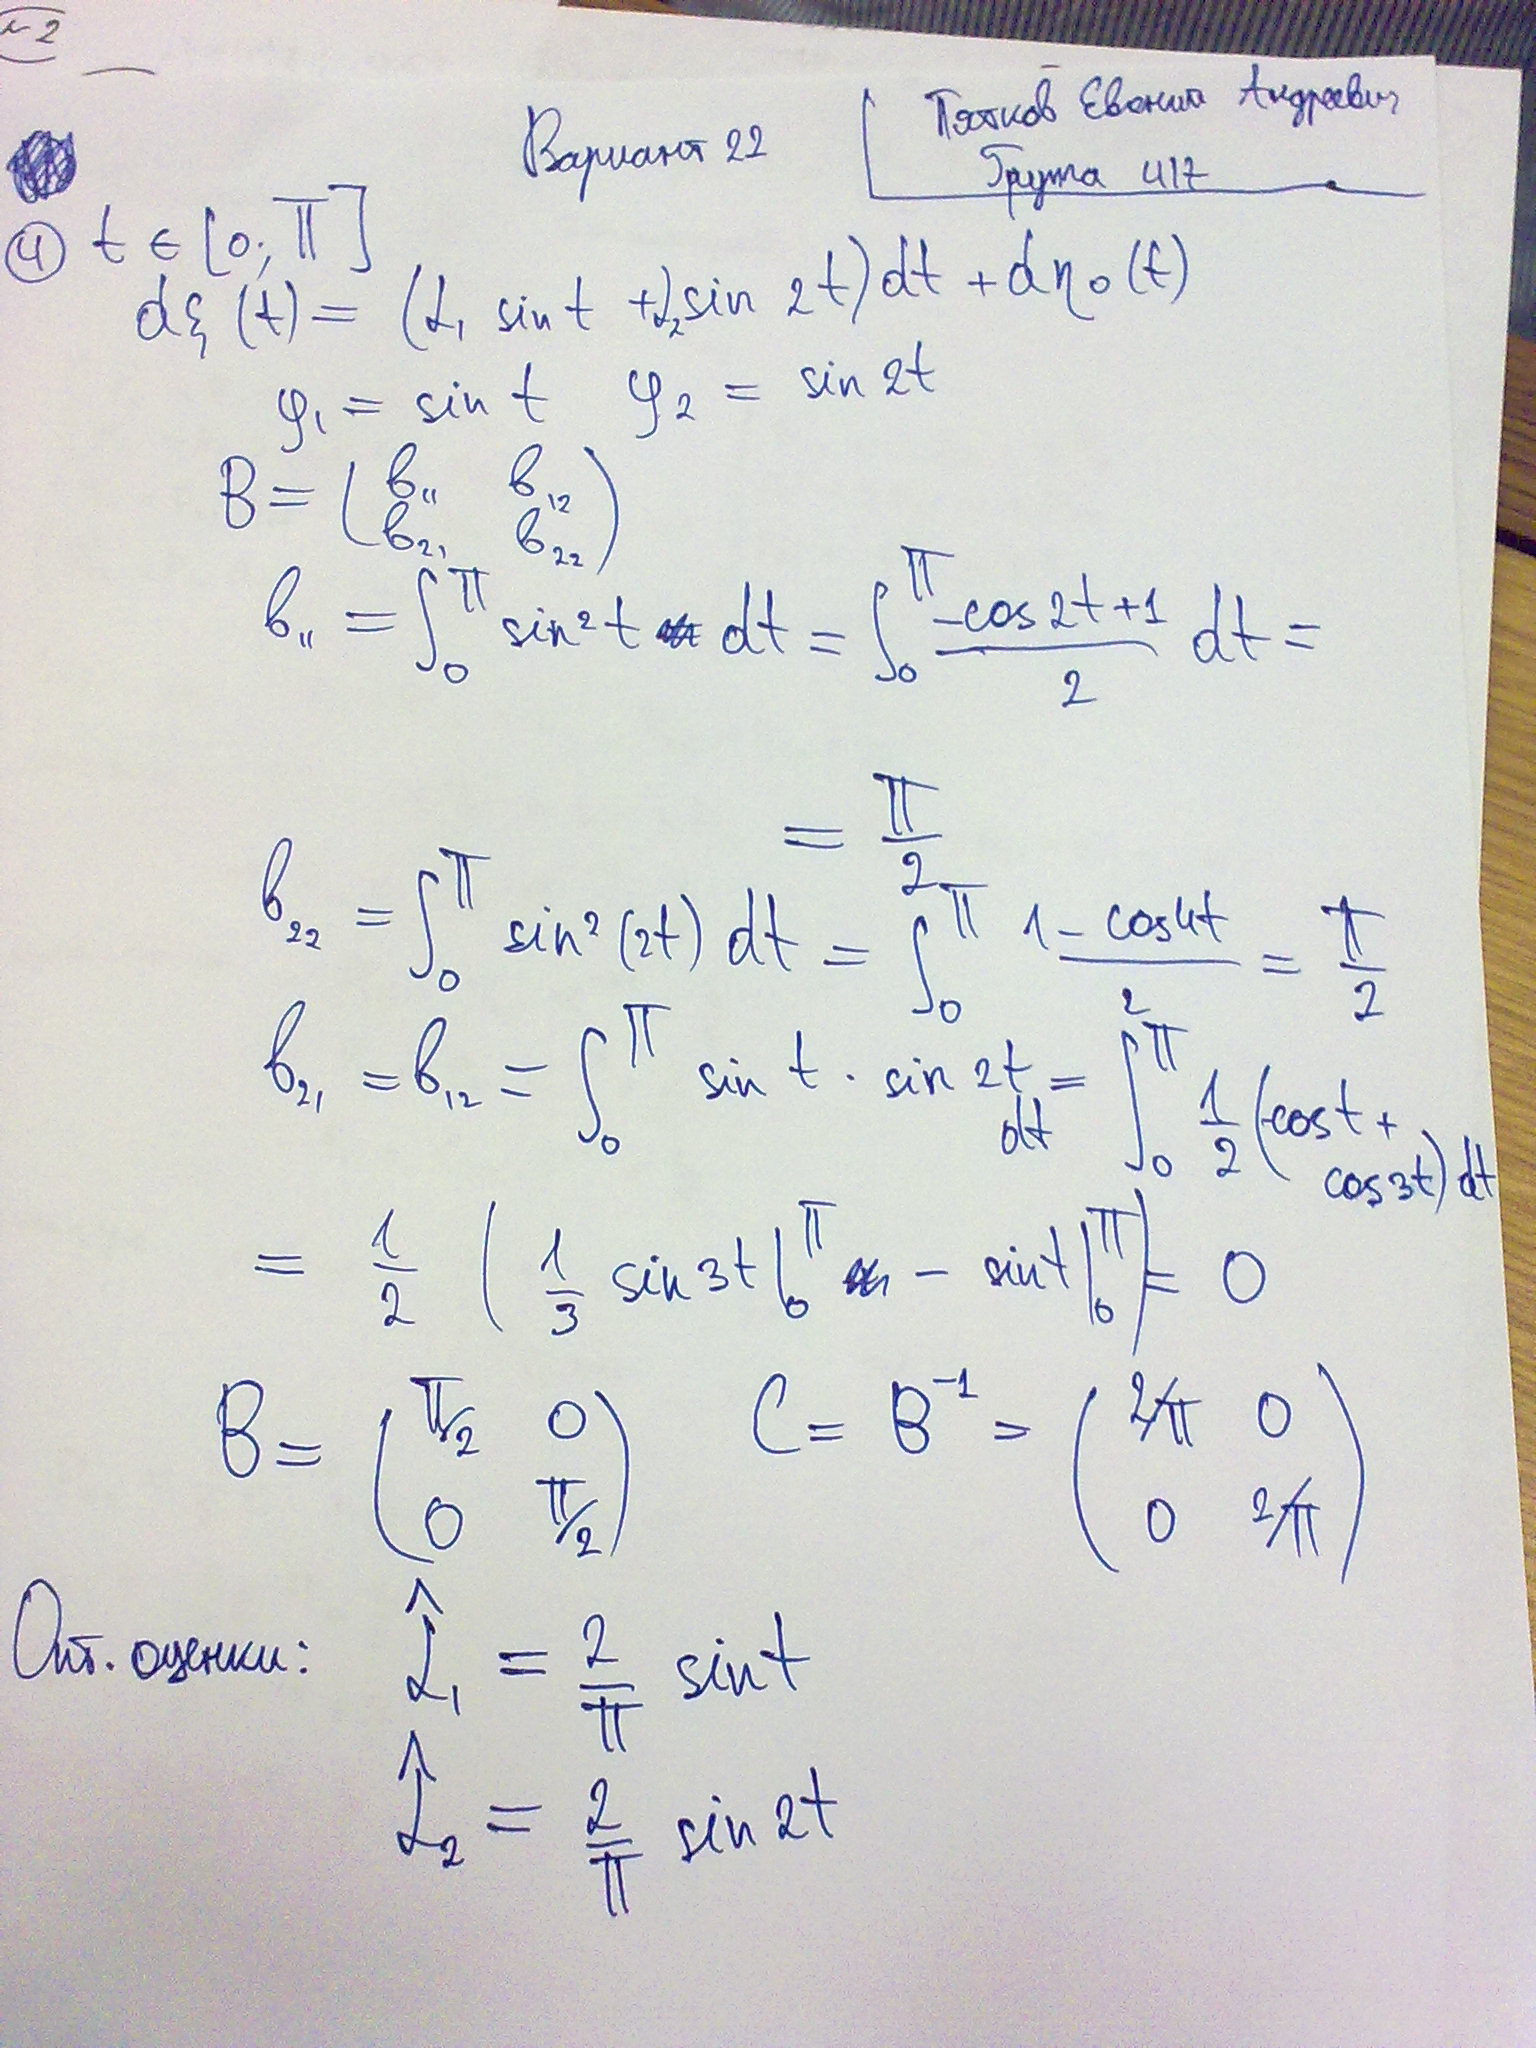 Вариант 22
Пятков Евгений Андреевич
Группа 417
④ t ∈ [0; π]
dξ(t) = (α₁ sin t + α₂ sin 2t) dt + dη₀(t)
φ₁ = sin t φ₂ = sin 2t
B = ( b₁₁ b₁₂
b₂₁ b₂₂ )
b₁₁ = ∫₀^π sin² t dt = ∫₀^π (-cos 2t + 1)/2 dt =
= π/2
b₂₂ = ∫₀^π sin² (2t) dt = ∫₀^π (1 - cos 4t)/2 = π/2
b₂₁ = b₁₂ = ∫₀^π sin t · sin 2t dt = ∫₀^π 1/2 (-cos t + cos 3t) dt
= 1/2 ( 1/3 sin 3t |₀^π - sin t |₀^π ) = 0
B = ( π/2 0 C = B⁻¹ = ( 2/π 0
0 π/2 ) 0 2/π )
Опт. оценки: α̂₁ = 2/π sin t
α̂₂ = 2/π sin 2t